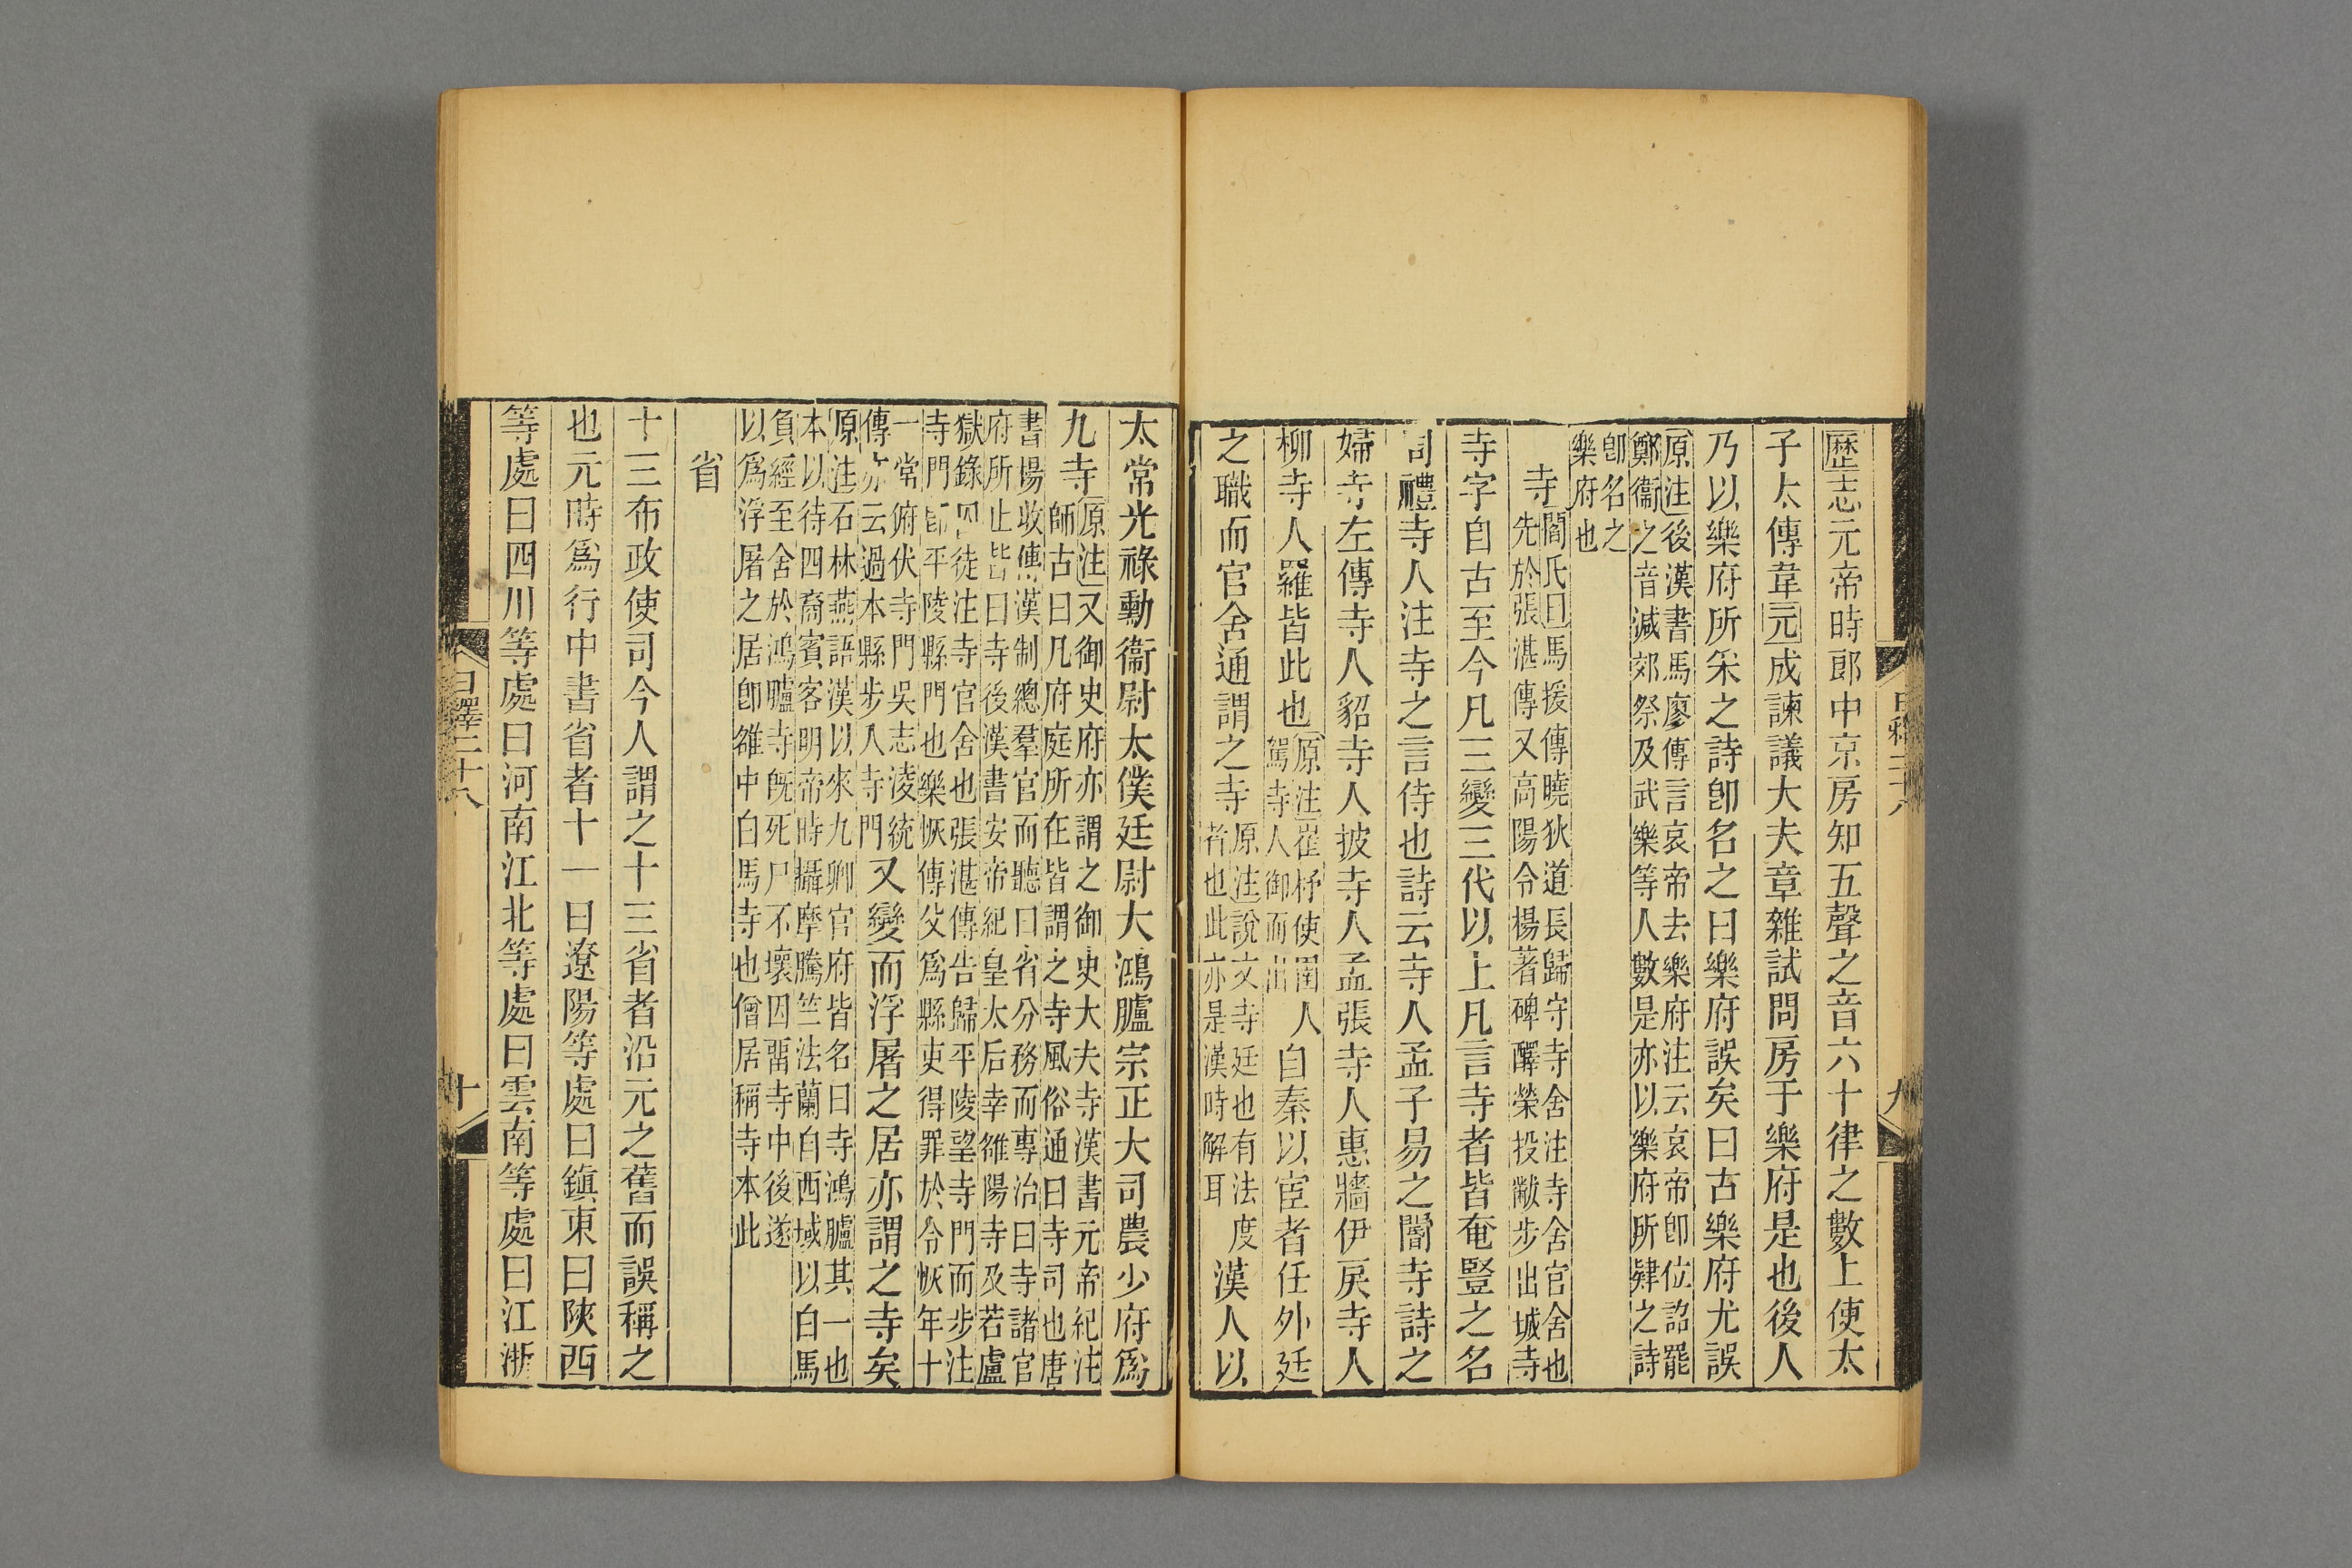 歷志元帝時郎中京房知五聲之音六十律之數上使太
子太傅韋元成諫議大夫章雜試問房于樂府是也後人
乃以樂府所采之詩卽名之曰樂府誤矣曰古樂府尤誤
原注後漢書馬廖傳言哀帝去樂府注云哀帝卽位詔罷
鄭衞之音減郊祭及武樂等人數是亦以樂府所肄之詩
卽名之
樂府也
寺
閻氏曰馬援傳曉狄道長歸守寺舍注寺舍官舍也
先於張湛傳又高陽令楊著碑醳榮投黻步出城寺
寺字自古至今凡三變三代以上凡言寺者皆奄豎之名
司禮寺人注寺之言侍也詩云寺人孟子易之閽寺詩之
婦寺左傳寺人貂寺人披寺人孟張寺人惠牆伊戾寺人
柳寺人羅皆此也
原注崔杼使圉人
駕寺人御而出
自秦以宦者任外廷
之職而官舍通謂之寺
原注說文寺廷也有法度
者也此亦是漢時解耳
漢人以
太常光祿勳衞尉太僕廷尉大鴻臚宗正大司農少府爲
九寺
原注又御史府亦謂之御史大夫寺漢書元帝紀注
師古曰凡府庭所在皆謂之寺風俗通曰寺司也唐
書楊收傳漢制總羣官而聽曰省分務而專治曰寺諸官
府所止皆曰寺後漢書安帝紀皇太后幸雒陽寺及若盧
獄錄囚徒注寺官舍也張湛傳告歸平陵望寺門而步注
寺門卽平陵縣門也樂恢傳父爲縣吏得罪於令恢年十
一常俯伏寺門吳志淩統
傳亦云過本縣步人寺門
又變而浮屠之居亦謂之寺矣
原注石林燕語漢以來九卿官府皆名曰寺鴻臚其一也
本以待四裔賓客明帝時攝摩騰竺法蘭自西域以白馬
負經至舍於鴻臚寺旣死尸不壞因畱寺中後遂
以爲浮屠之居卽雒中白馬寺也僧居稱寺本此
省
十三布政使司今人謂之十三省者沿元之舊而誤稱之
也元時爲行中書省者十一曰遼陽等處曰鎮東曰陝西
等處曰四川等處曰河南江北等處曰雲南等處曰江浙
日釋二十八
十